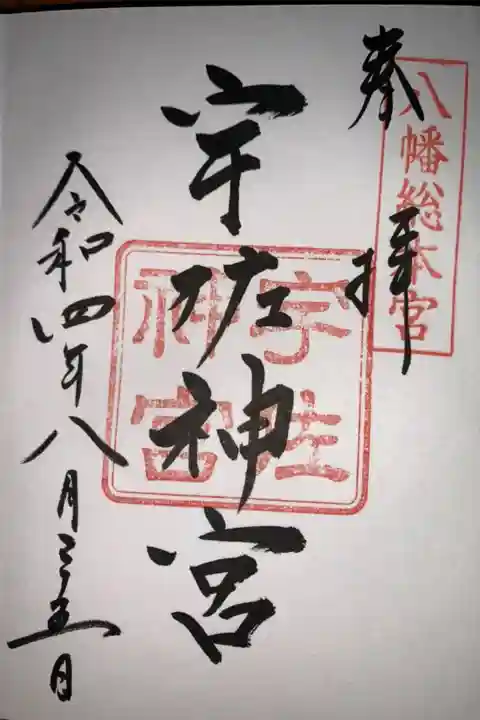 八幡総本宮
奉拝
宇佐神宮
宇佐神宮
令和四年八月二五日